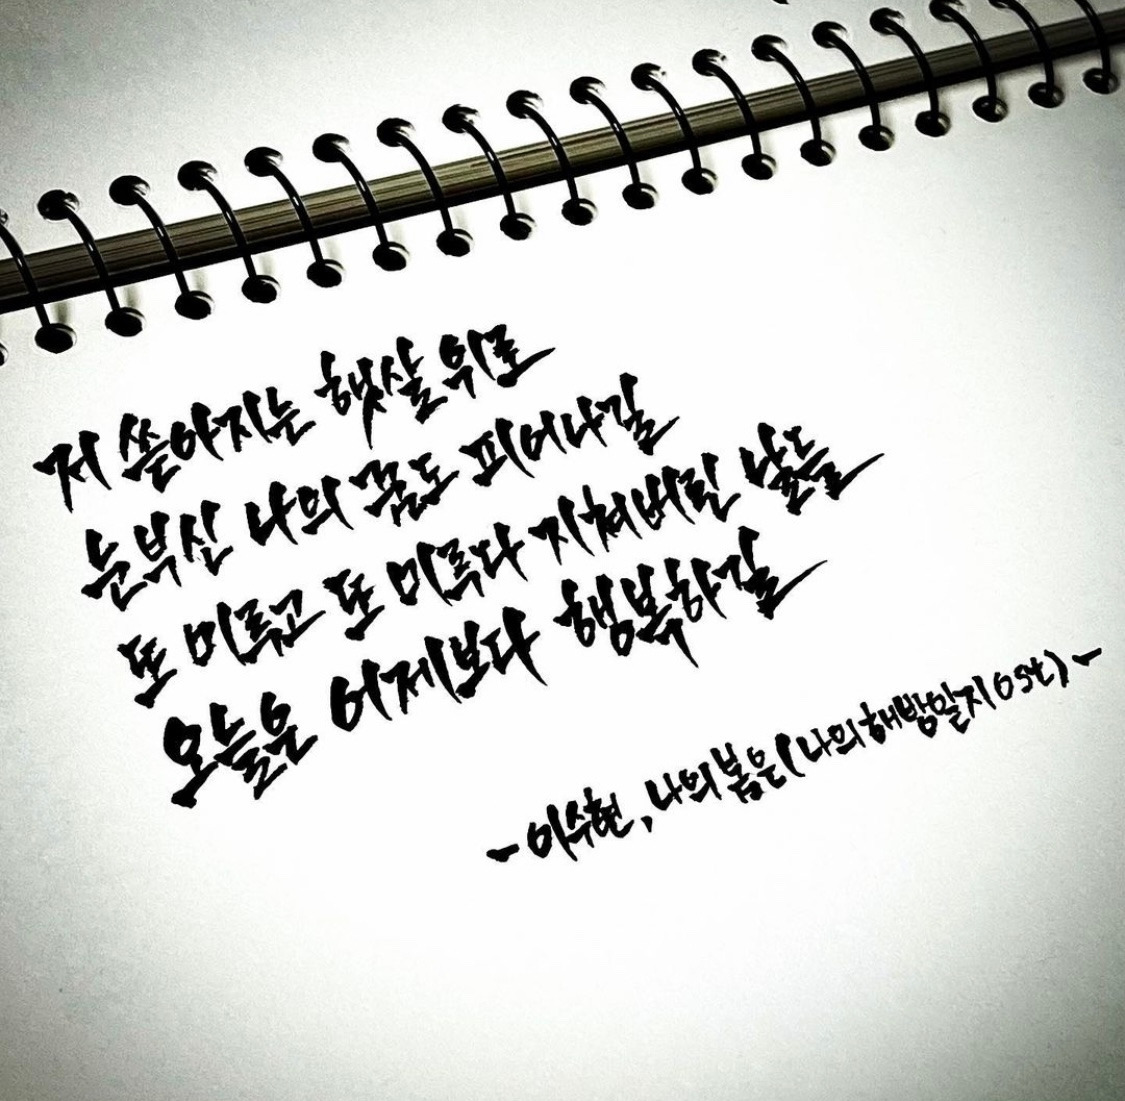 저 쏟아지는 햇살 위로
눈부신 나의 꿈도 피어나길
또 미루고 또 미루다 지쳐버린 날들
오늘은 어제보다 행복하길
- 이수현, 나의 봄은(나의 해방일지 ost) -